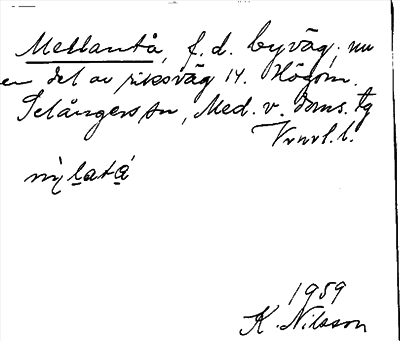 Mellantå, f.d. byväg, nu
en del av riksväg 14. Högom.
Selångers sn, Med. v. doms. tg
Vrnrl. l.
1959
K. Nilsson